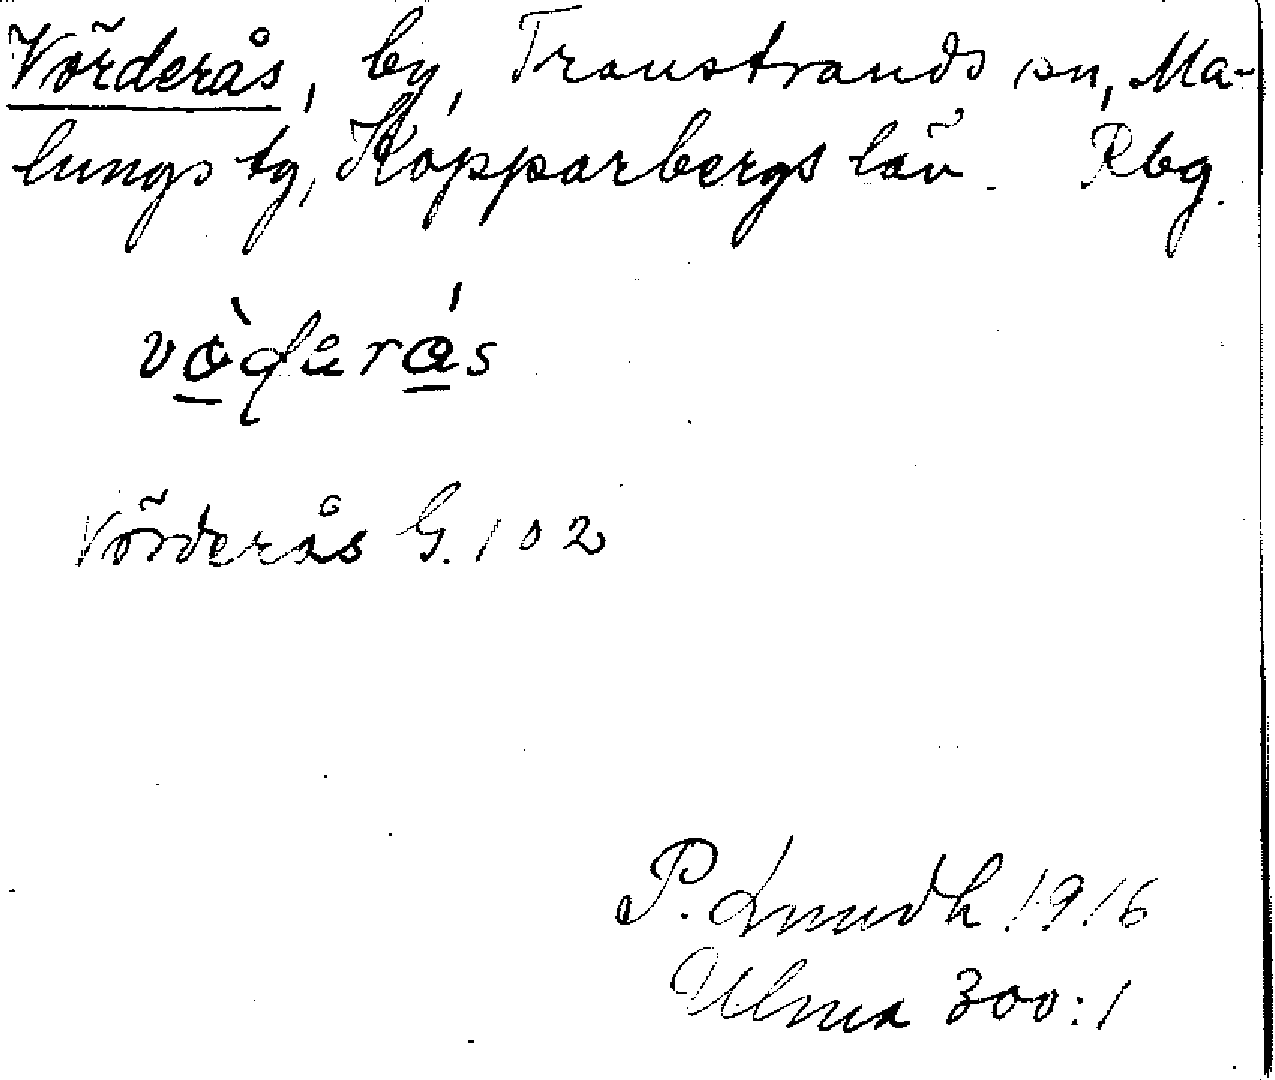 Vörderås, by, Transtrands sn, Ma-
lungs tg, Kopparbergs län. Rbg.
Vörderås G. 102
P. Lundh 1916
Ulma 300:1